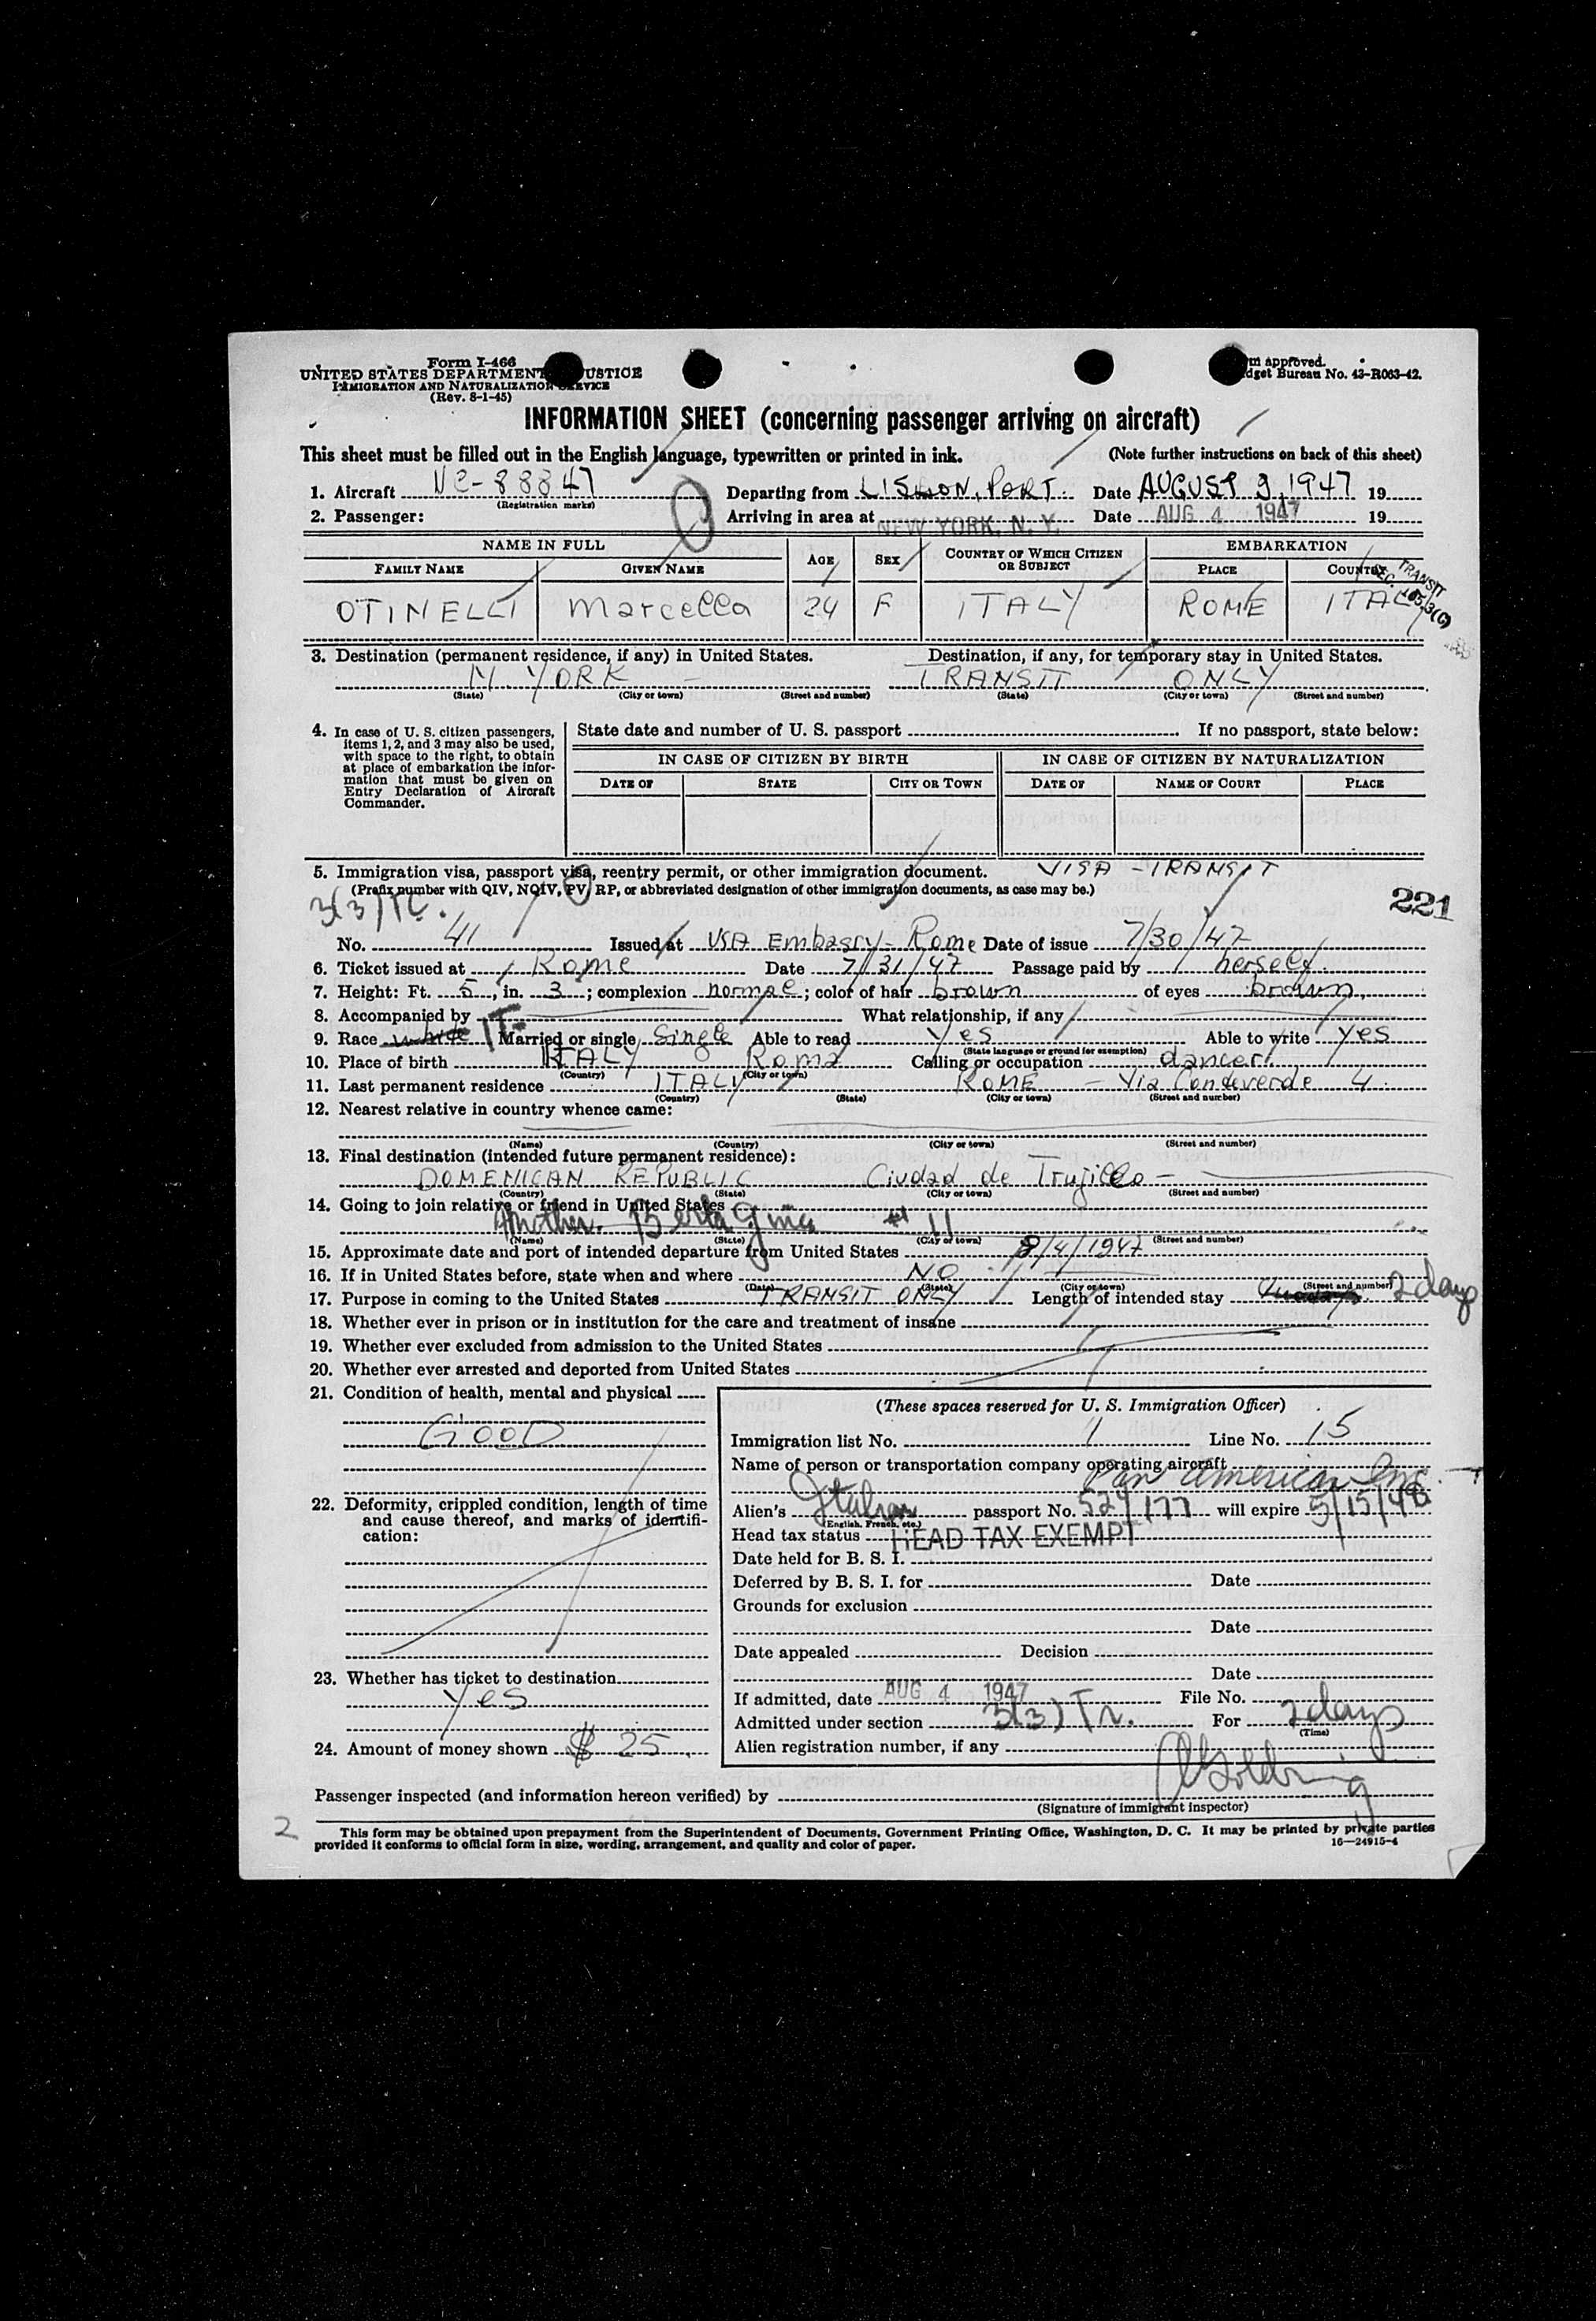 Form I-466
UNITED STATES DEPARTMENT USTICE
IMMIGRATION AND NATURALIZATION SERVICE
(Rev. 8-1-45)
m approved.
dget Bureau No. 43-R063-42.
INFORMATION SHEET (concerning passenger arriving on aircraft)
This sheet must be filled out in the English language, typewritten or printed in ink. (Note further instructions on back of this sheet)
1. Aircraft NC-88847 Departing from LISBON, PORT. Date AUGUST 3, 1947 19
(Registration marks)
2. Passenger: Arriving in area at NEW YORK, N. Y. Date AUG 4 1947 19
NAME IN FULL AGE SEX COUNTRY OF WHICH CITIZEN OR SUBJECT EMBARKATION
FAMILY NAME GIVEN NAME PLACE COUNTRY
TRANSIT
SEC. 105.3(C)
OTINELLI Marcella 24 F ITALY ROME ITALY
3. Destination (permanent residence, if any) in United States. Destination, if any, for temporary stay in United States.
N. YORK – TRANSIT ONLY
(State) (City or town) (Street and number) (State) (City or town) (Street and number)
4. In case of U. S. citizen passengers, items 1, 2, and 3 may also be used, with space to the right, to obtain at place of embarkation the information that must be given on Entry Declaration of Aircraft Commander.
State date and number of U. S. passport If no passport, state below:
IN CASE OF CITIZEN BY BIRTH IN CASE OF CITIZEN BY NATURALIZATION
DATE OF STATE CITY OR TOWN DATE OF NAME OF COURT PLACE
5. Immigration visa, passport visa, reentry permit, or other immigration document. VISA - TRANSIT
(Prefix number with QIV, NQIV, PV, RP, or abbreviated designation of other immigration documents, as case may be.)
221
3(3)Tr.
No. 41 Issued at USA Embassy - Rome Date of issue 7/30/47
6. Ticket issued at Rome Date 7/31/47 Passage paid by herself.
7. Height: Ft. 5, in. 3; complexion normal; color of hair brown of eyes brown,
8. Accompanied by What relationship, if any
9. Race white IT- Married or single Single Able to read Yes Able to write Yes
(State language or ground for exemption)
10. Place of birth ITALY Roma Calling or occupation dancer
(Country) (City or town)
11. Last permanent residence ITALY ROME - Via Conteverde 4.
(Country) (State) (City or town) (Street and number)
12. Nearest relative in country whence came:
(Name) (Country) (City or town) (Street and number)
13. Final destination (intended future permanent residence):
DOMENICAN REPUBLIC Ciudad de Trujillo -
(Country) (State) (City or town) (Street and number)
14. Going to join relative or friend in United States
mother. Berta Gina 11
(Name) (State) (City or town) (Street and number)
15. Approximate date and port of intended departure from United States 8/4/1947
16. If in United States before, state when and where NO
(Date) (State) (City or town) (Street and number)
17. Purpose in coming to the United States TRANSIT ONLY Length of intended stay 2 days
18. Whether ever in prison or in institution for the care and treatment of insane
19. Whether ever excluded from admission to the United States
20. Whether ever arrested and deported from United States
21. Condition of health, mental and physical
GOOD
22. Deformity, crippled condition, length of time and cause thereof, and marks of identification:
23. Whether has ticket to destination
Yes
24. Amount of money shown $ 25.
(These spaces reserved for U. S. Immigration Officer)
Immigration list No. 1 Line No. 15
Name of person or transportation company operating aircraft
Pan American Inc.
Alien's Italian passport No. 524177 will expire 5/15/48
(English, French, etc.)
Head tax status HEAD TAX EXEMPT
Date held for B. S. I.
Deferred by B. S. I. for Date
Grounds for exclusion
Date
Date appealed Decision
Date
If admitted, date AUG 4 1947 File No.
Admitted under section 3(3) Tr. For 2 days
(Time)
Alien registration number, if any
Passenger inspected (and information hereon verified) by
(Signature of immigrant inspector)
2
This form may be obtained upon prepayment from the Superintendent of Documents, Government Printing Office, Washington, D. C. It may be printed by private parties
provided it conforms to official form in size, wording, arrangement, and quality and color of paper. 16—24915-4